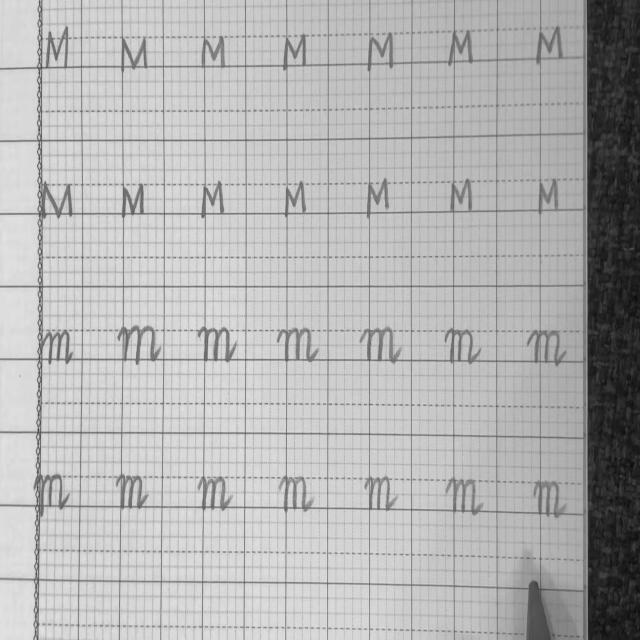 M M M M M M M
M M M M M M M
m m m m m m m
m m m m m m m